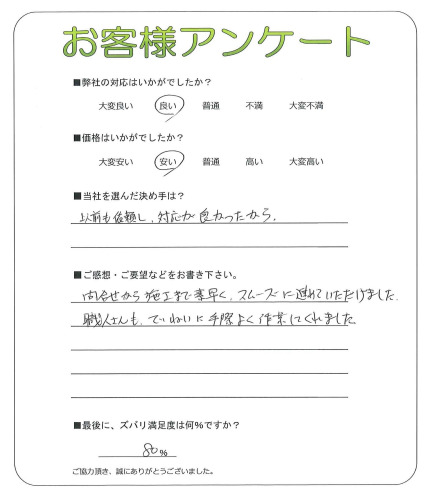 お客様アンケート
■弊社の対応はいかがでしたか？
大変良い 良い 普通 不満 大変不満
■価格はいかがでしたか？
大変安い 安い 普通 高い 大変高い
■当社を選んだ決め手は？
以前も依頼し、対応が良かったから。
■ご感想・ご要望などをお書き下さい。
問合せから施工まで素早く、スムーズに進めていただけました。
職人さんも、ていねいに手際よく作業してくれました
■最後に、ズバリ満足度は何％ですか？
80％
ご協力頂き、誠にありがとうございました。